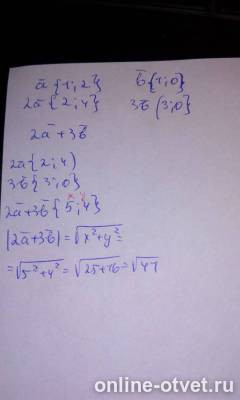 ā {1; 2} b̄ {1; 0}
2ā {2; 4} 3b̄ {3; 0}
2ā + 3b̄
2ā {2; 4}
3b̄ {3; 0}
x y
2ā + 3b̄ {5; 4}
|2ā + 3b̄| = √x² + y² =
= √5² + 4² = √25 + 16 = √41
online-otvet.ru